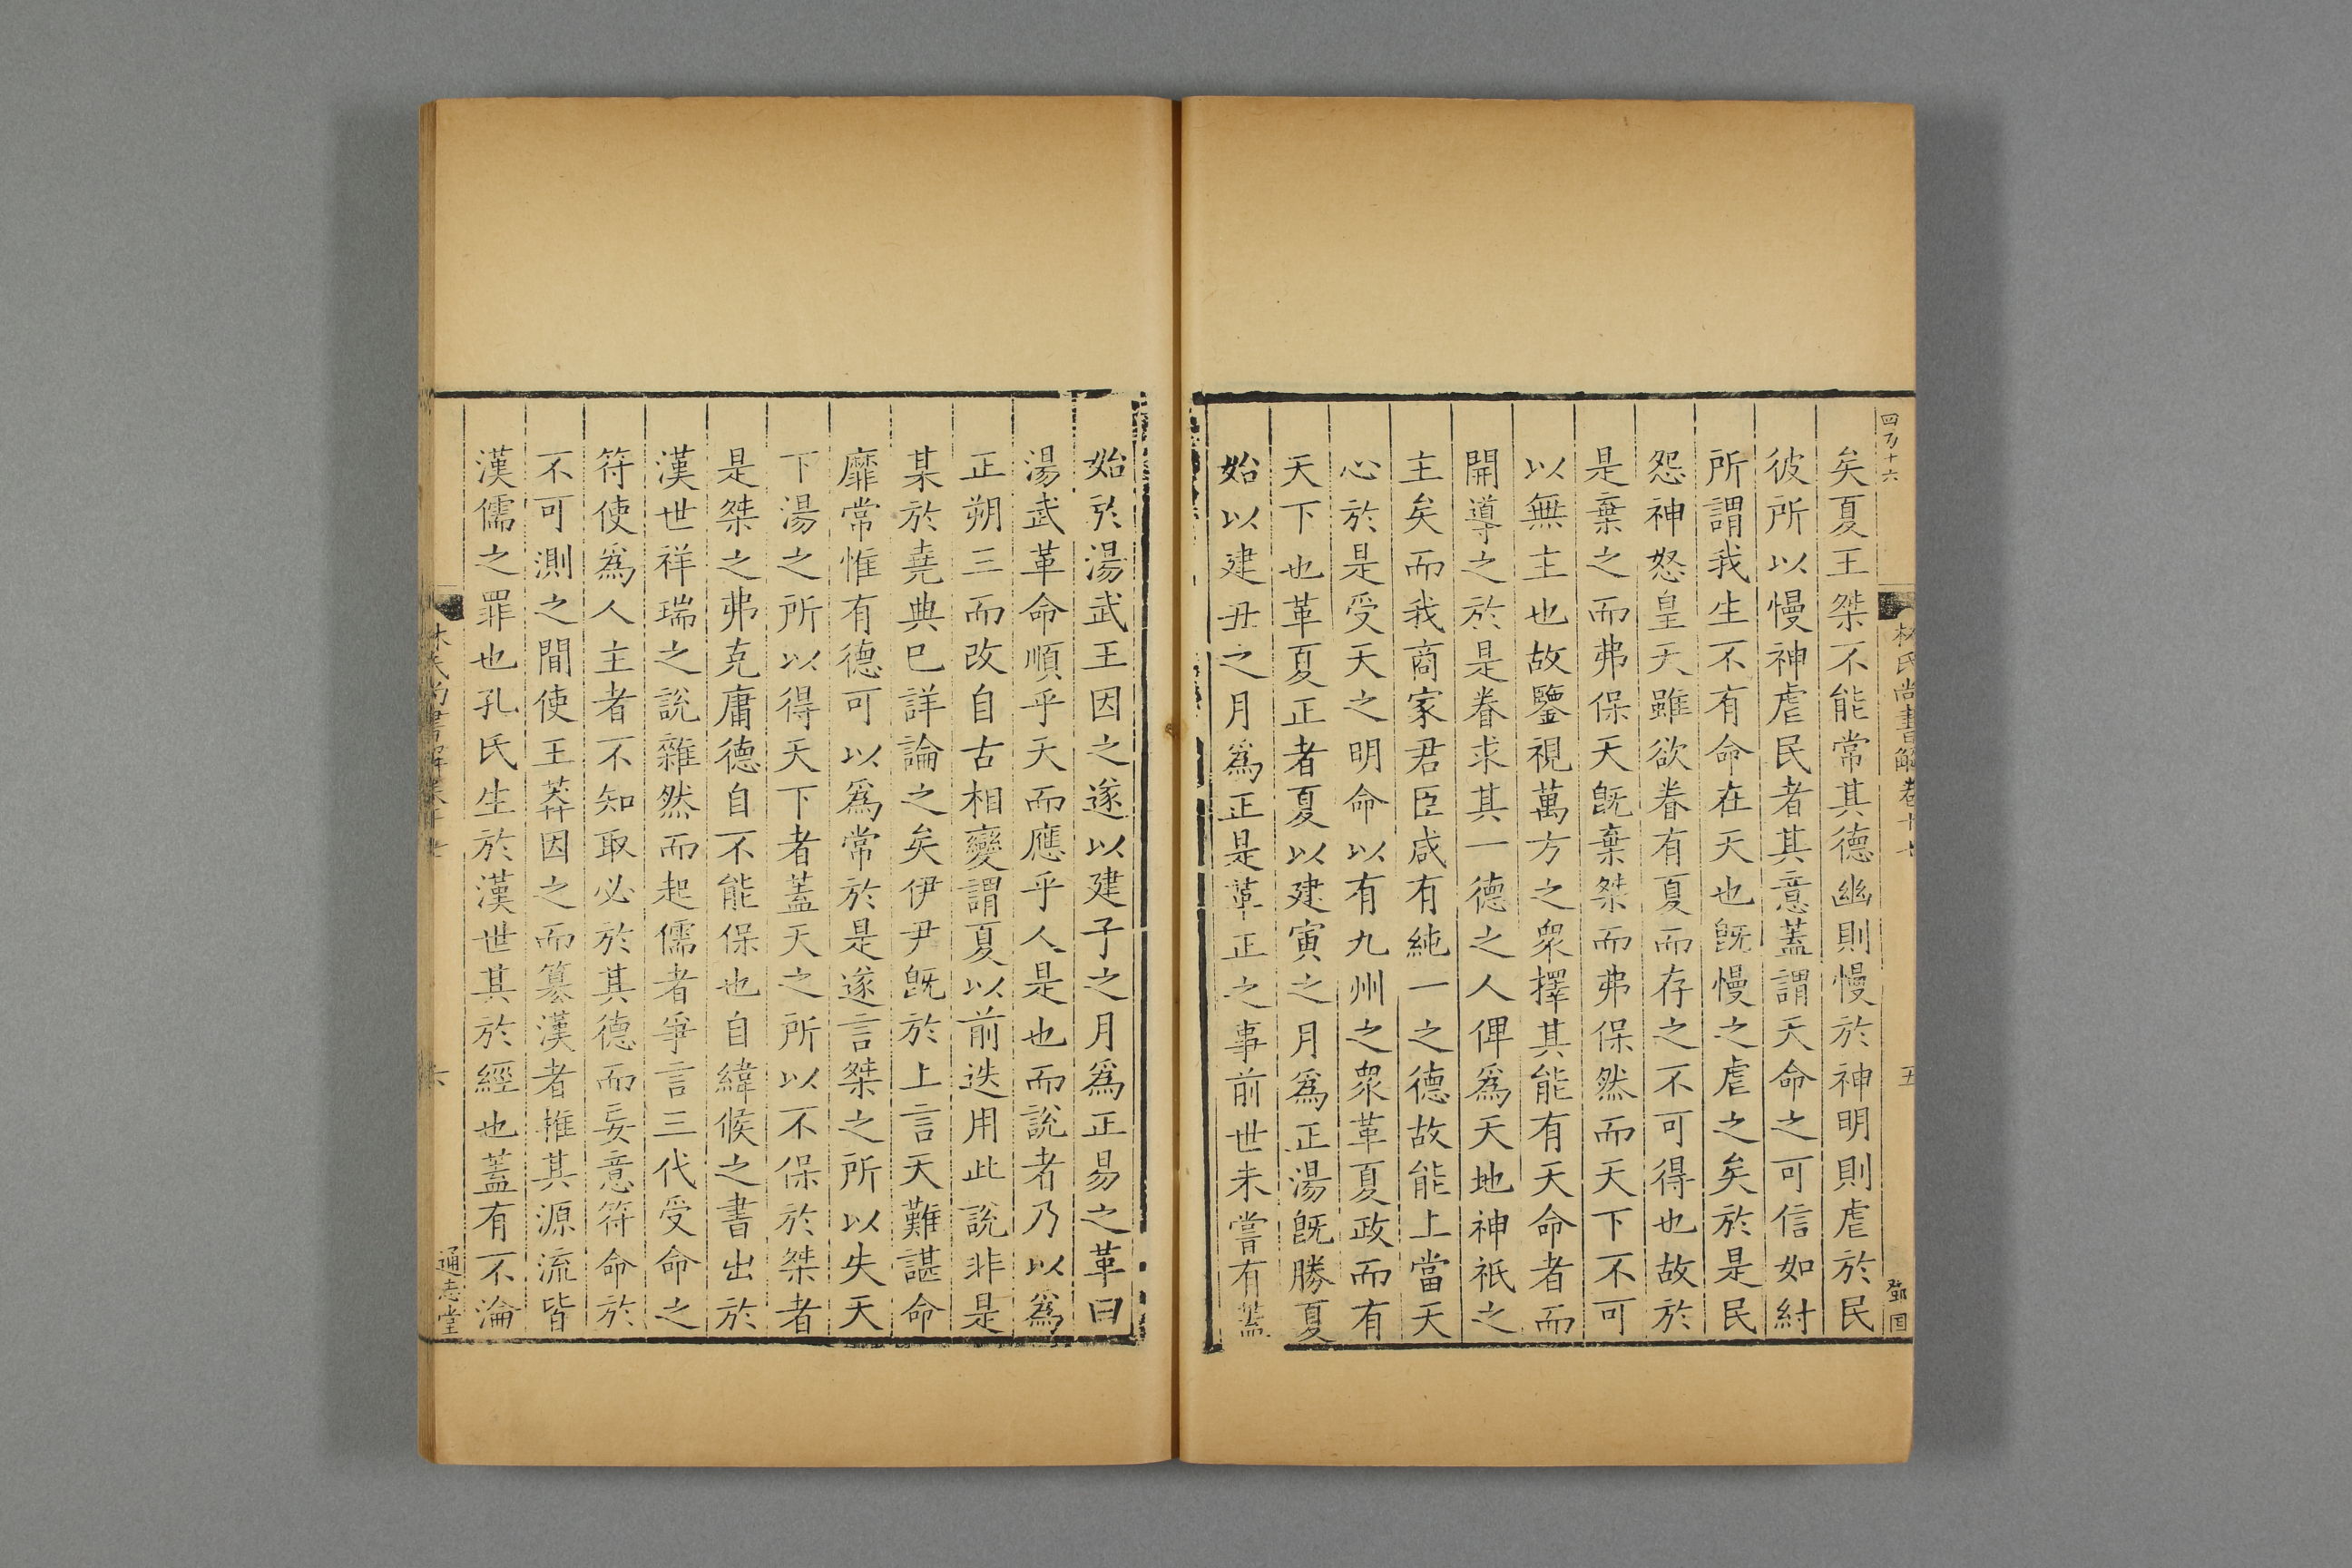 四万十六
林氏尚書解卷十七
五
鄧国
矣夏王桀不能常其德幽則慢於神明則虐於民
彼所以慢神虐民者其意蓋謂天命之可信如紂
所謂我生不有命在天也旣慢之虐之矣於是民
怨神怒皇天雖欲眷有夏而存之不可得也故於
是棄之而弗保天旣棄桀而弗保然而天下不可
以無主也故鑒視萬方之衆擇其能有天命者而
開導之於是眷求其一德之人俾爲天地神祇之
主矣而我商家君臣咸有純一之德故能上當天
心於是受天之明命以有九州之衆革夏政而有
天下也革夏正者夏以建寅之月爲正湯旣勝夏
始以建丑之月爲正是革正之事前世未嘗有蓋
始於湯武王因之遂以建子之月爲正易之革曰
湯武革命順乎天而應乎人是也而說者乃以爲
正朔三而改自古相變謂夏以前迭用此說非是
某於堯典已詳論之矣伊尹旣於上言天難諶命
靡常惟有德可以爲常於是遂言桀之所以失天
下湯之所以得天下者蓋天之所以不保於桀者
是桀之弗克庸德自不能保也自緯候之書出於
漢世祥瑞之說雜然而起儒者爭言三代受命之
符使爲人主者不知取必於其德而妄意符命於
不可測之間使王莽因之而篡漢者推其源流皆
漢儒之罪也孔氏生於漢世其於經也蓋有不淪
林氏尚書解卷十七
六
通志堂